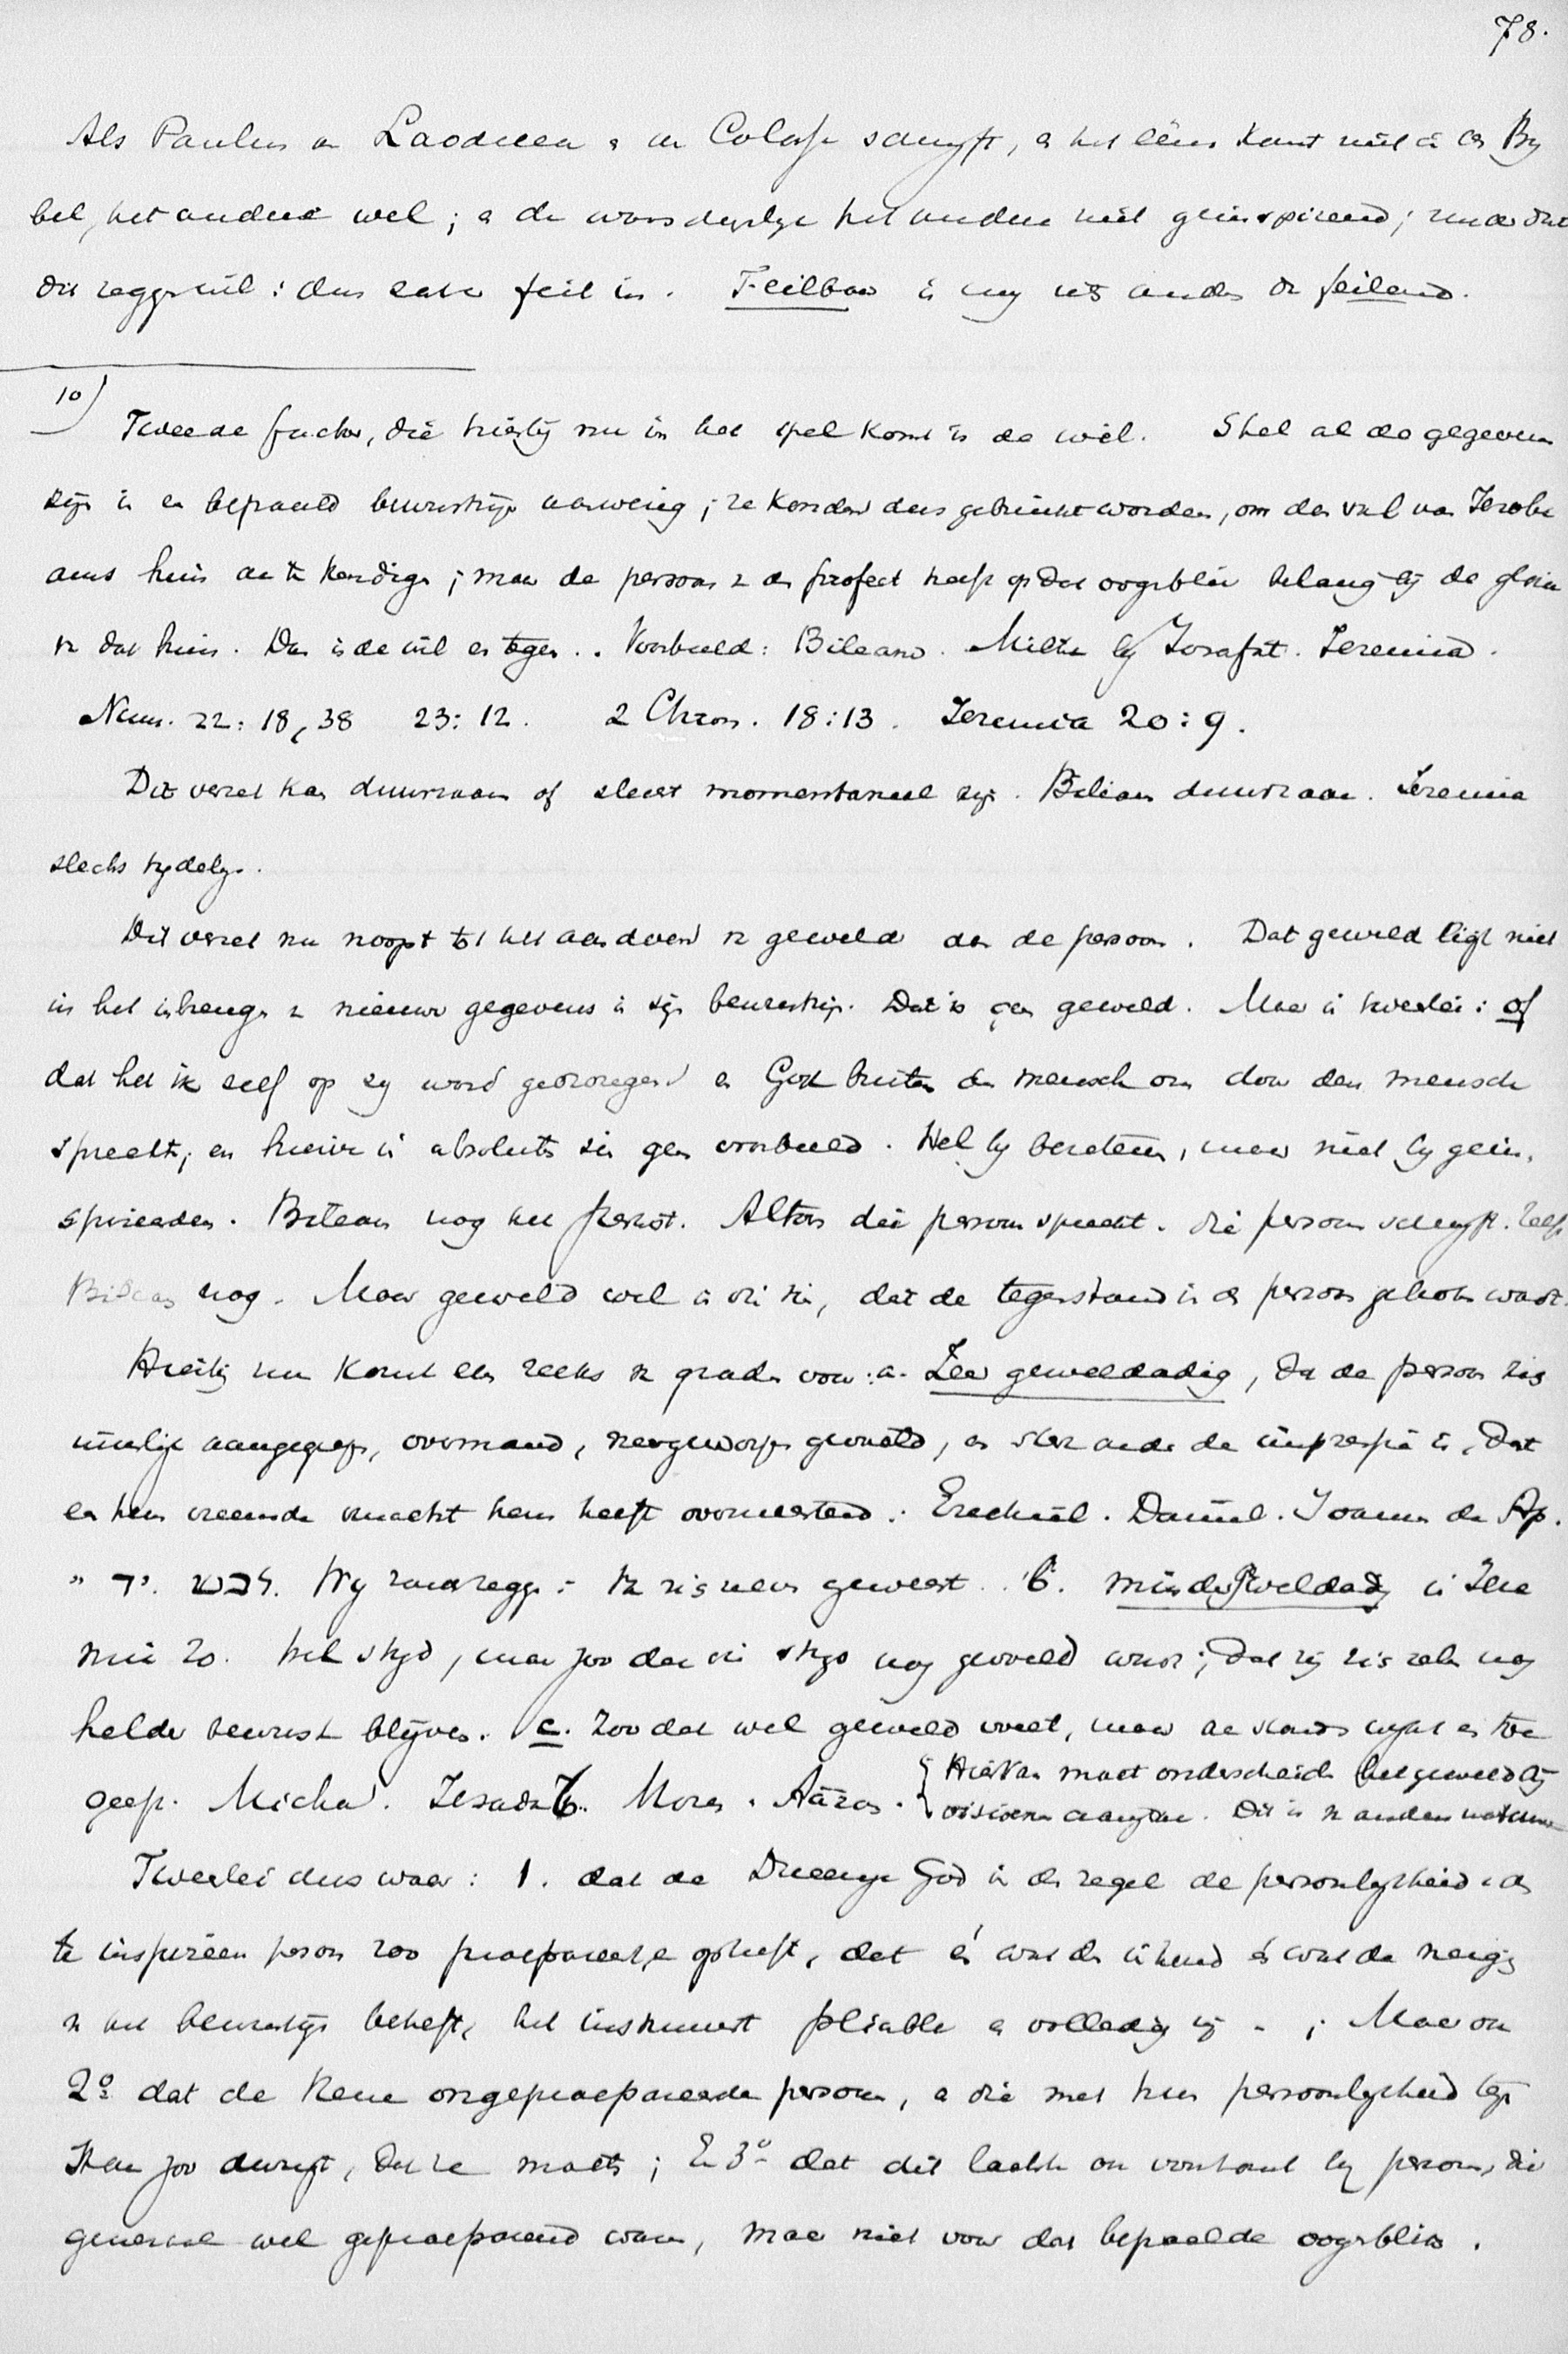 78.
Als Paulus en Laodicea & en Colosse schryft, & het eene komt niet in de By
bel, het andere wel; & de het andere niet geinspireerd;
dit zegge wil: dus feil in. Feilbaar is nog iets anders dan feilend.
10) Tweede factor, die hierbij nu in het spel komt is de wil. Stel al de gegevens
zijn in en bepaald bewustzijn aanwezig; ze konden dus gebruikt worden, om den val van Jerobe
ams huis aan te kondigen; maar de persoon v de profeet heeft op dat oogenblik belang bij de glorie
v dat huis. Dan is de wil er tegen.. Voorbeeld: Bileam. Micha by Josafat. Jeremia.
Num. 22: 18, 38 23: 12. 2 Chron. 18:13. Jeremia 20:9.
Dit verzet kan duurzaam of slechts momentaneel zijn. Bileam duurzaam. Jeremia
slechts tydelyk.
Dit verzet nu noopt tot het aandoen v geweld aan de persoon. Dat geweld ligt niet
in het inbrengen v nieuwe gegevens in zijn bewustzijn. Dat is geen geweld. Maar in tweeërlei: of
dat het ik zelf op zy word gedrongen en God buiten den mensch om door den mensch
spreekt; en hiervan is absolute zin geen voorbeeld. Wel by bezetenen, maar niet by gein.
spireerden. Bileam nog het sterkst. Altoos die persoon spreekt. die persoon schryft. Zelfs
Bileam nog. Maar geweld wel in die zin, dat de tegenstand in de persoon gebroken wordt.
Hierbij nu komt een reeks v graden voor: a. Zeer gewelddadig, dat de persoon zich
innerlijk aangegrepen, overmand, neergeworpen gevoeld, en onder de impressie is, dat
en hem vreemde macht hem heeft overmeesterd. Ezechiel. Daniel. Joannes de Ap.
Wy zouden zeggen: buiten zichzelven geweest. b. minder gewelddadig in Jere
mia 20. Wel stryd, maar zoo dat die stryd nog gevoeld word; dat zij zich zelven nog
helder bewust blijven. c. Zoo dat wel geweld voelt, maar aanstonds wykt en toe
geeft. Micha. Jesaja 6. Mozes. Aäron. { Hiervan moet onderscheiden het geweld bij
visioenen aangedaan. Dit is v anderen natuur
Tweeerlei dus waar: 1. dat de Drieenige God in den regel de persoonlykheid v de
te inspireeren persoon zoo praepareert, & opheft, dat én wat den inhoud én wat de neiging
v het bewustzijn betreft, het instrument pliable & volledig zij - ; Maar ook
2º dat de Heere ongepraepareerde persoonen, & die met hun persoonlykheid tegen
Hem zoo dwingt, dat ze moeten; En 3º dat dit laatste ook voorkomt by persoonen, die
generaal wel gepraepareerd waren, maar niet voor dat bepaalde oogenblik.